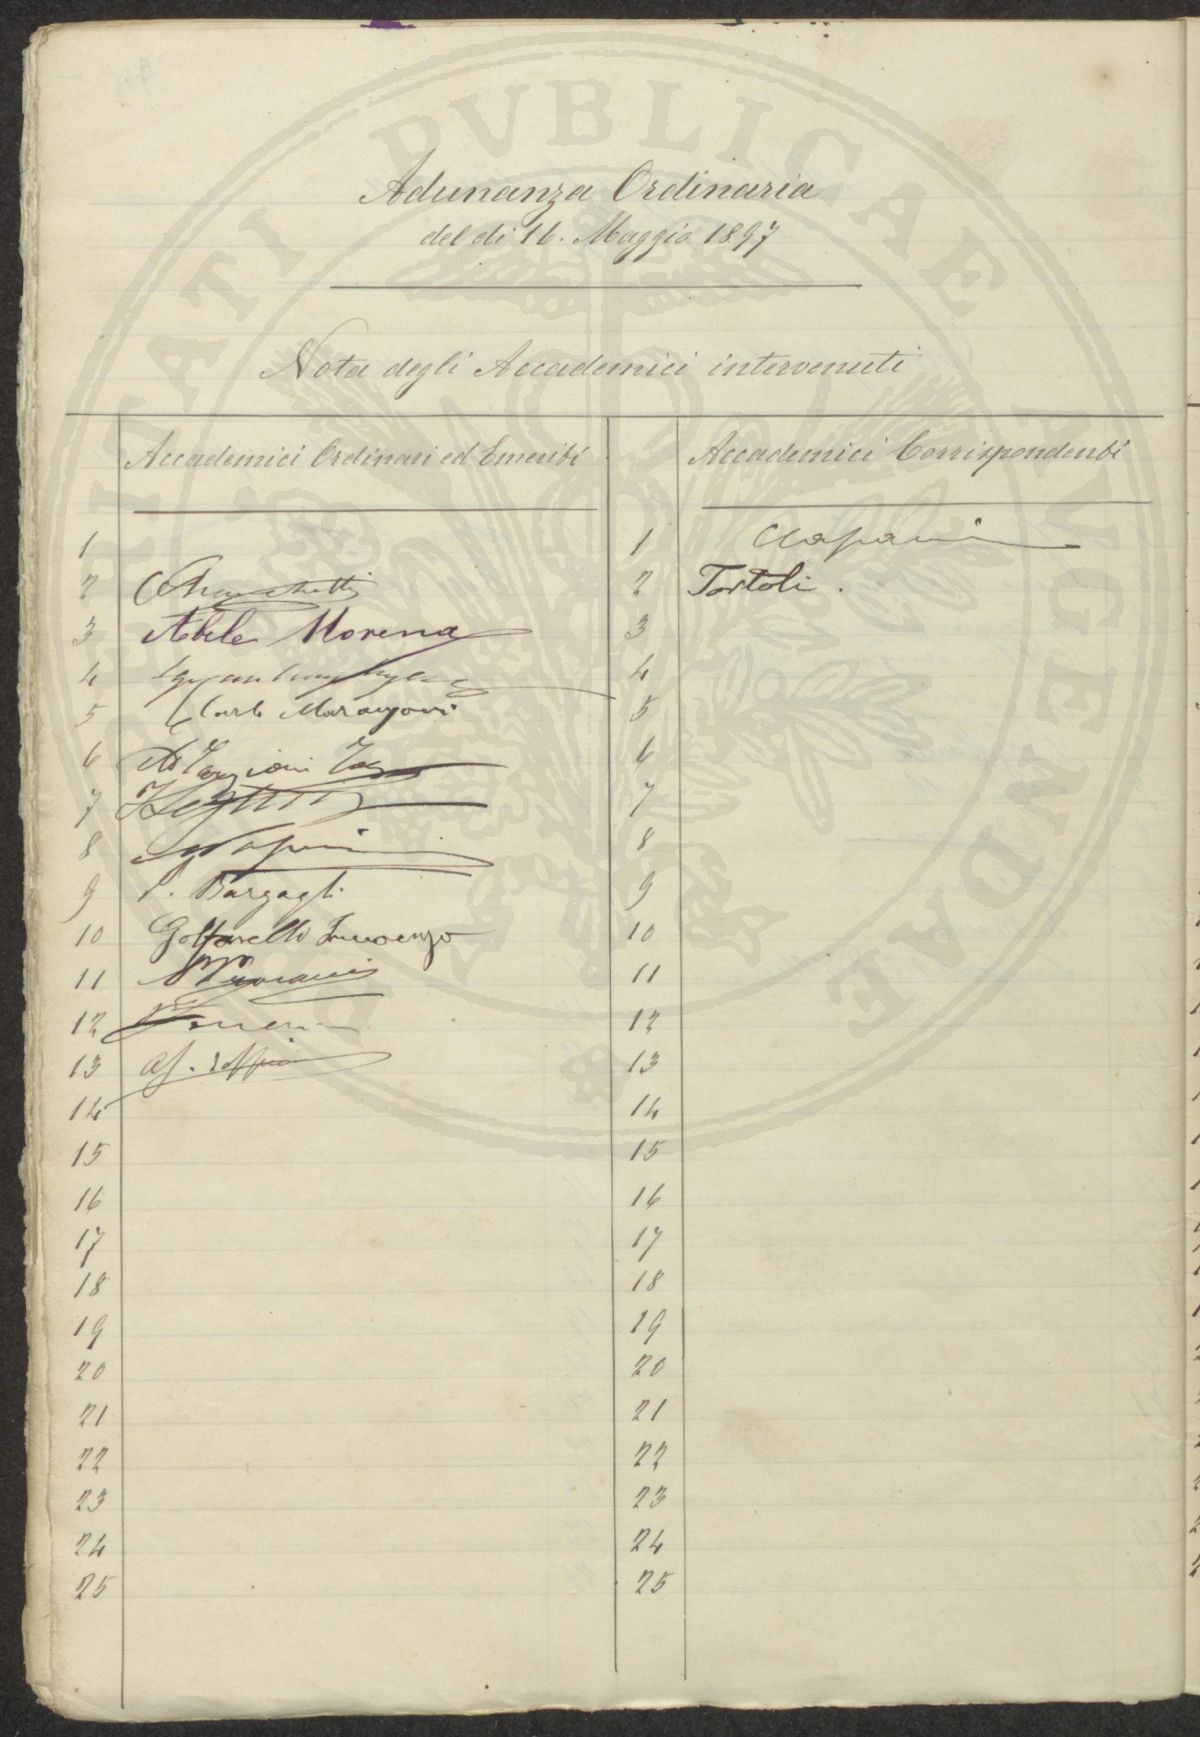 PROSPERITATI PUBLICAE AUGENDAE
Adunanza Ordinaria
del dì 16. Maggio 1897
Nota degli Accademici intervenuti
Accademici Ordinari ed Emeriti
Accademici Corrispondenti
1
2
3 Abele Morena
4
5 Carlo Marangoni
6 Ad Targioni Tozz
7
8
9 P. Bargagli
10 Golfarelli Innocenzo
11
12
13
14
15
16
17
18
19
20
21
22
23
24
25
1
2 Tortoli.
3
4
5
6
7
8
9
10
11
12
13
14
15
16
17
18
19
20
21
22
23
24
25